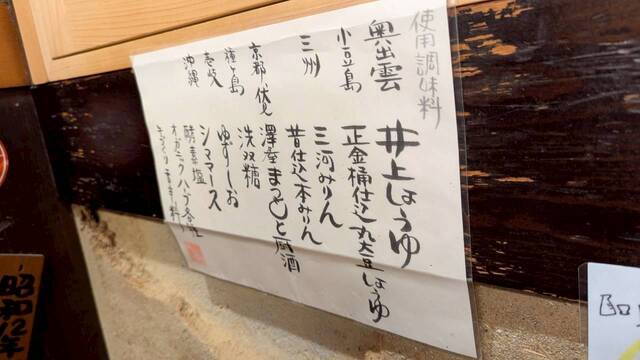 使用調味料
奥出雲 井上しょうゆ
小豆島 正金桶仕込丸大豆しょうゆ
三州 三河みりん
昔仕込本みりん
京都 伏見 澤屋まつもと厨酒
種ヶ島 洗双糖
壱岐 ゆずしお
沖縄 シママース
酵素塩
オーガニックハーブ
昭和12年